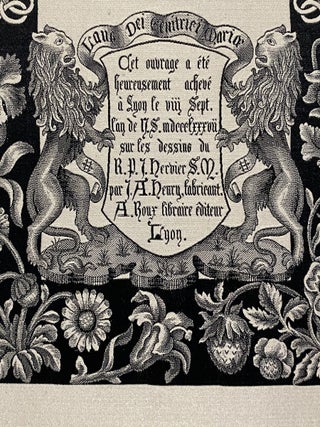 Laus Dei Genitrici Mariæ
Cet ouvrage a été
heureusement achevé
à Lyon le viij Sept.
l'an de N.S. mdccclxxxvii
sur les dessins du
R.P.J. Hervier S.M.
par J.A. Henry, fabricant.
A. Roux libraire éditeur
Lyon.